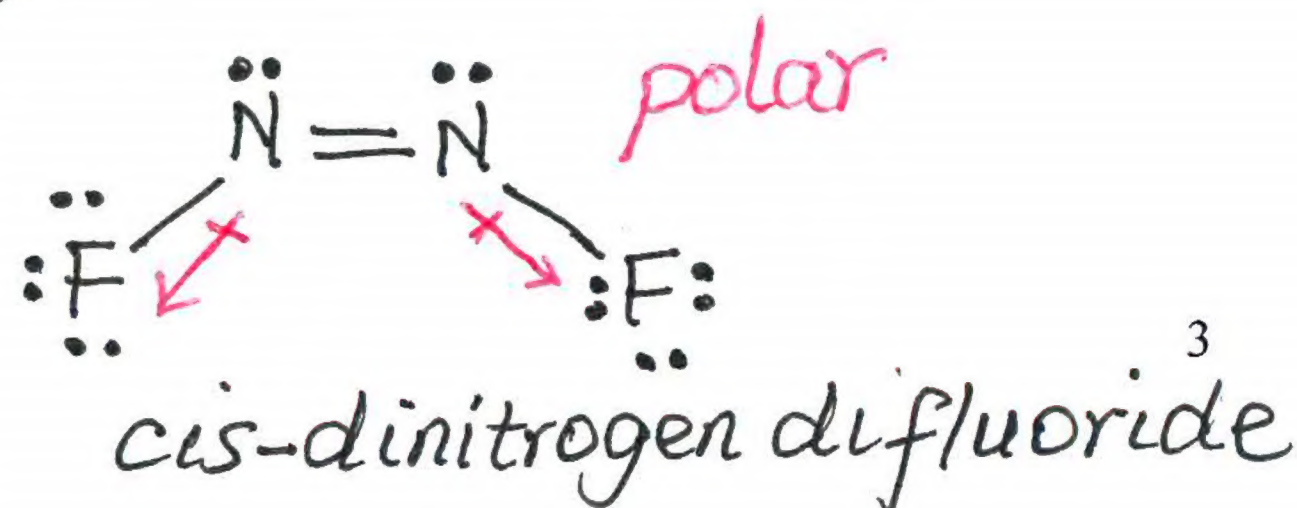 N = N polar
F F
3
cis-dinitrogen difluoride